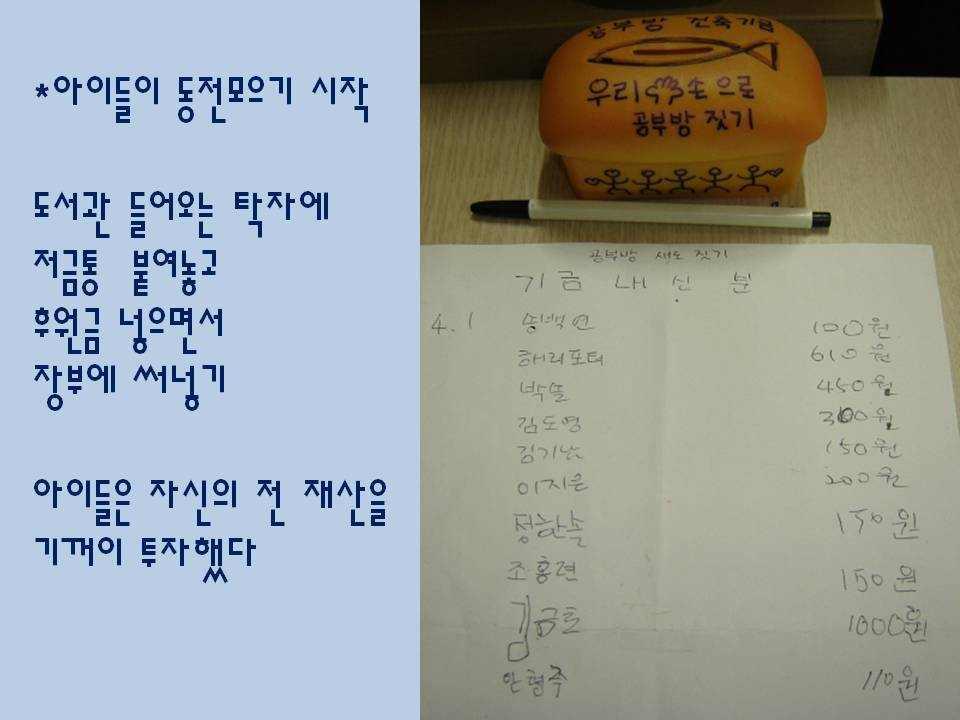 *아이들이 동전모으기 시작
도서관 들어오는 탁자에
저금통 붙여놓고
후원금 넣으면서
장부에 써넣기
아이들은 자신의 전 재산을
기꺼이 투자했다
공부방 건축기금
우리 손으로
공부방 짓기
공부방 새로 짓기
기금 내신 분
4.1 송백연 100원
해리포터 610원
박뜰 450원
김도영 300원
김기남 150원
이지은 200원
정한솔 150원
조홍련 150원
김금토 1000원
안형주 110원